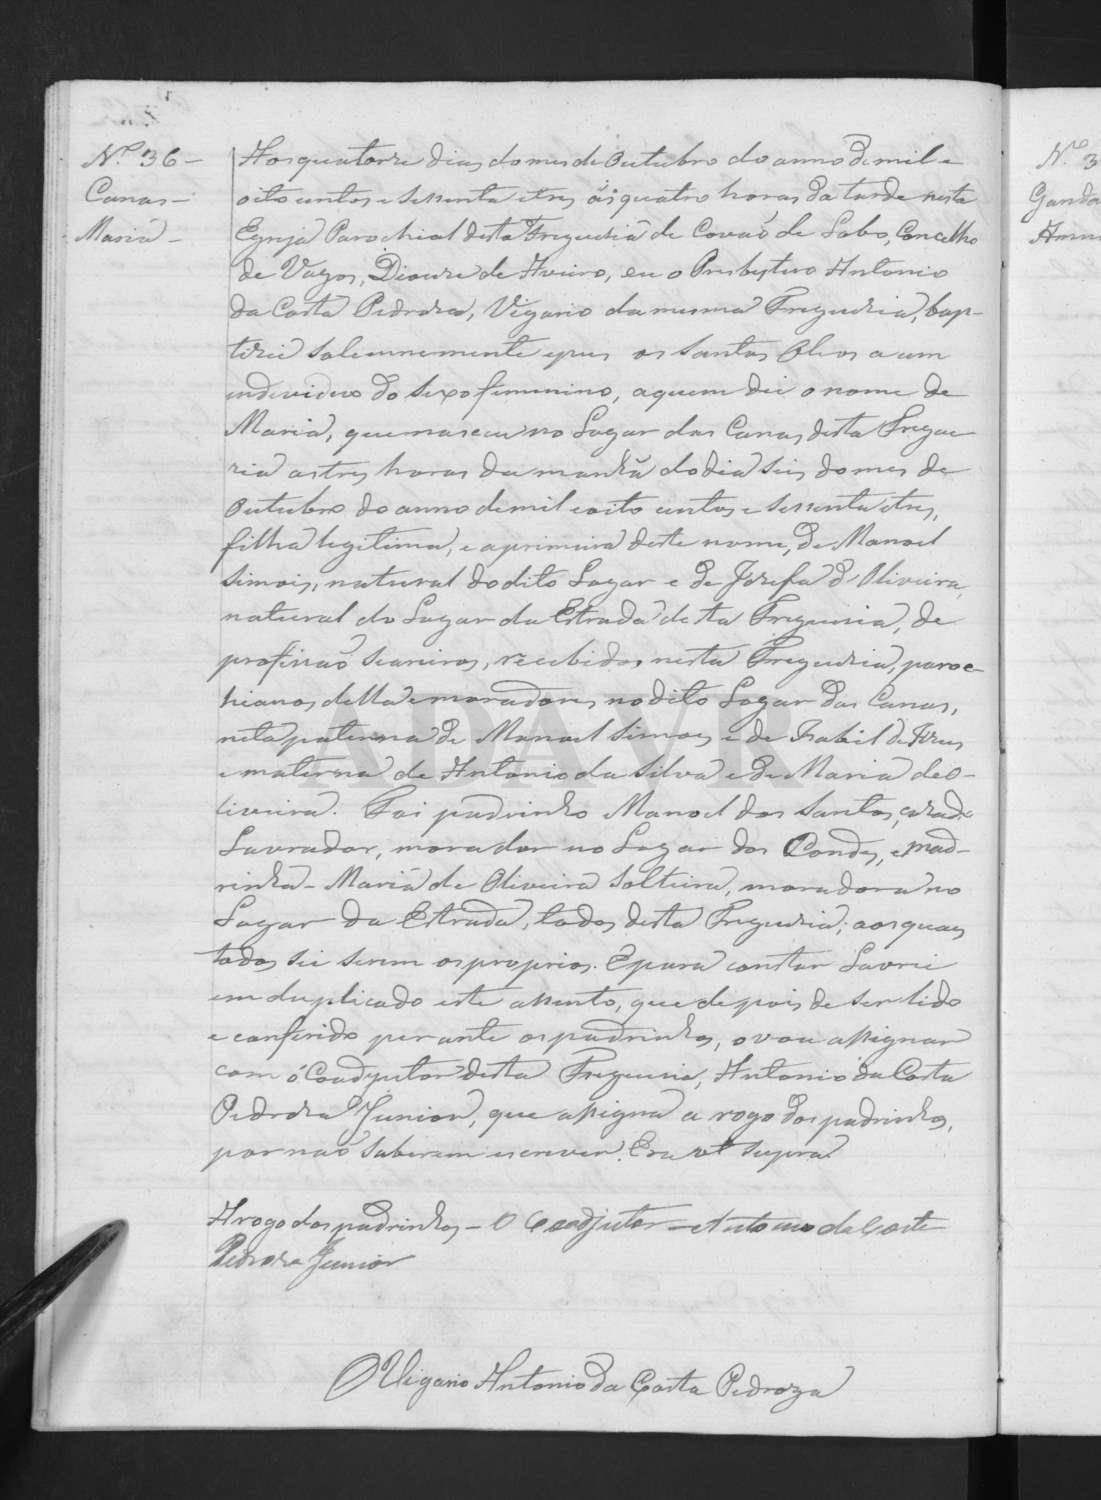 N.º 36 -
Canas -
Maria -
Aos quatorze dias do mes de Outubro do anno de mil e
oito centos e sessenta e tres ás quatro horas da tarde nesta
Egreja Parochial desta Freguesia de Covaõ de Lobo, Concelho
de Vagos, Diocese de Aveiro, eu o Presbytero Antonio
da Costa Pedroza, Vigario da mesma Freguezia, bap-
tizei solemnemente e puz os Santos Oleos a um
individuo do sexo femenino, a quem dei o nome de
Maria, que nasceu no Lugar das Canas desta Fregue
zia as tres horas da manhã do dia seis do mes de
Outubro do anno de mil e oito centos e sessenta e tres,
filha legitima, e a primeira deste nome, de Manoel
Simois, natural do dito Lugar e de Jozefa d'Oliveira,
natural do Lugar da Estrada desta Freguesia, de
profissaõ Seareiros, recebidos nesta Freguezia, paroc-
hianos della e moradores no dito Lugar das Canas,
neta paterna de Manoel Simoes e de Izabel de Jezus
e materna de Antonio da Silva e de Maria de O-
liveira. Foi padrinho Manoel dos Santos, cazado
Lavrador, morador no Lugar dos Condes, e mad-
rinha - Maria de Oliveira Solteira, moradora no
Lugar da Estrada, todos desta Freguezia; aos quaes
todos sei serem os proprios. E para constar Lavrei
em duplicado este assento, que depois de ser lido
e conferido perante os padrinhos, o vou assignar
com o Coadjutor desta Freguesia, Antonio da Costa
Pedroza Junior, que assigna a rogo dos padrinhos,
por naõ saberem escrever. Era ut supra.
A rogo dos padrinhos - O Coadjutor - Antonio da Costa
Pedroza Junior
O Vigario Antonio da Costa Pedroza
ADAVR
N.º 3
Ganda